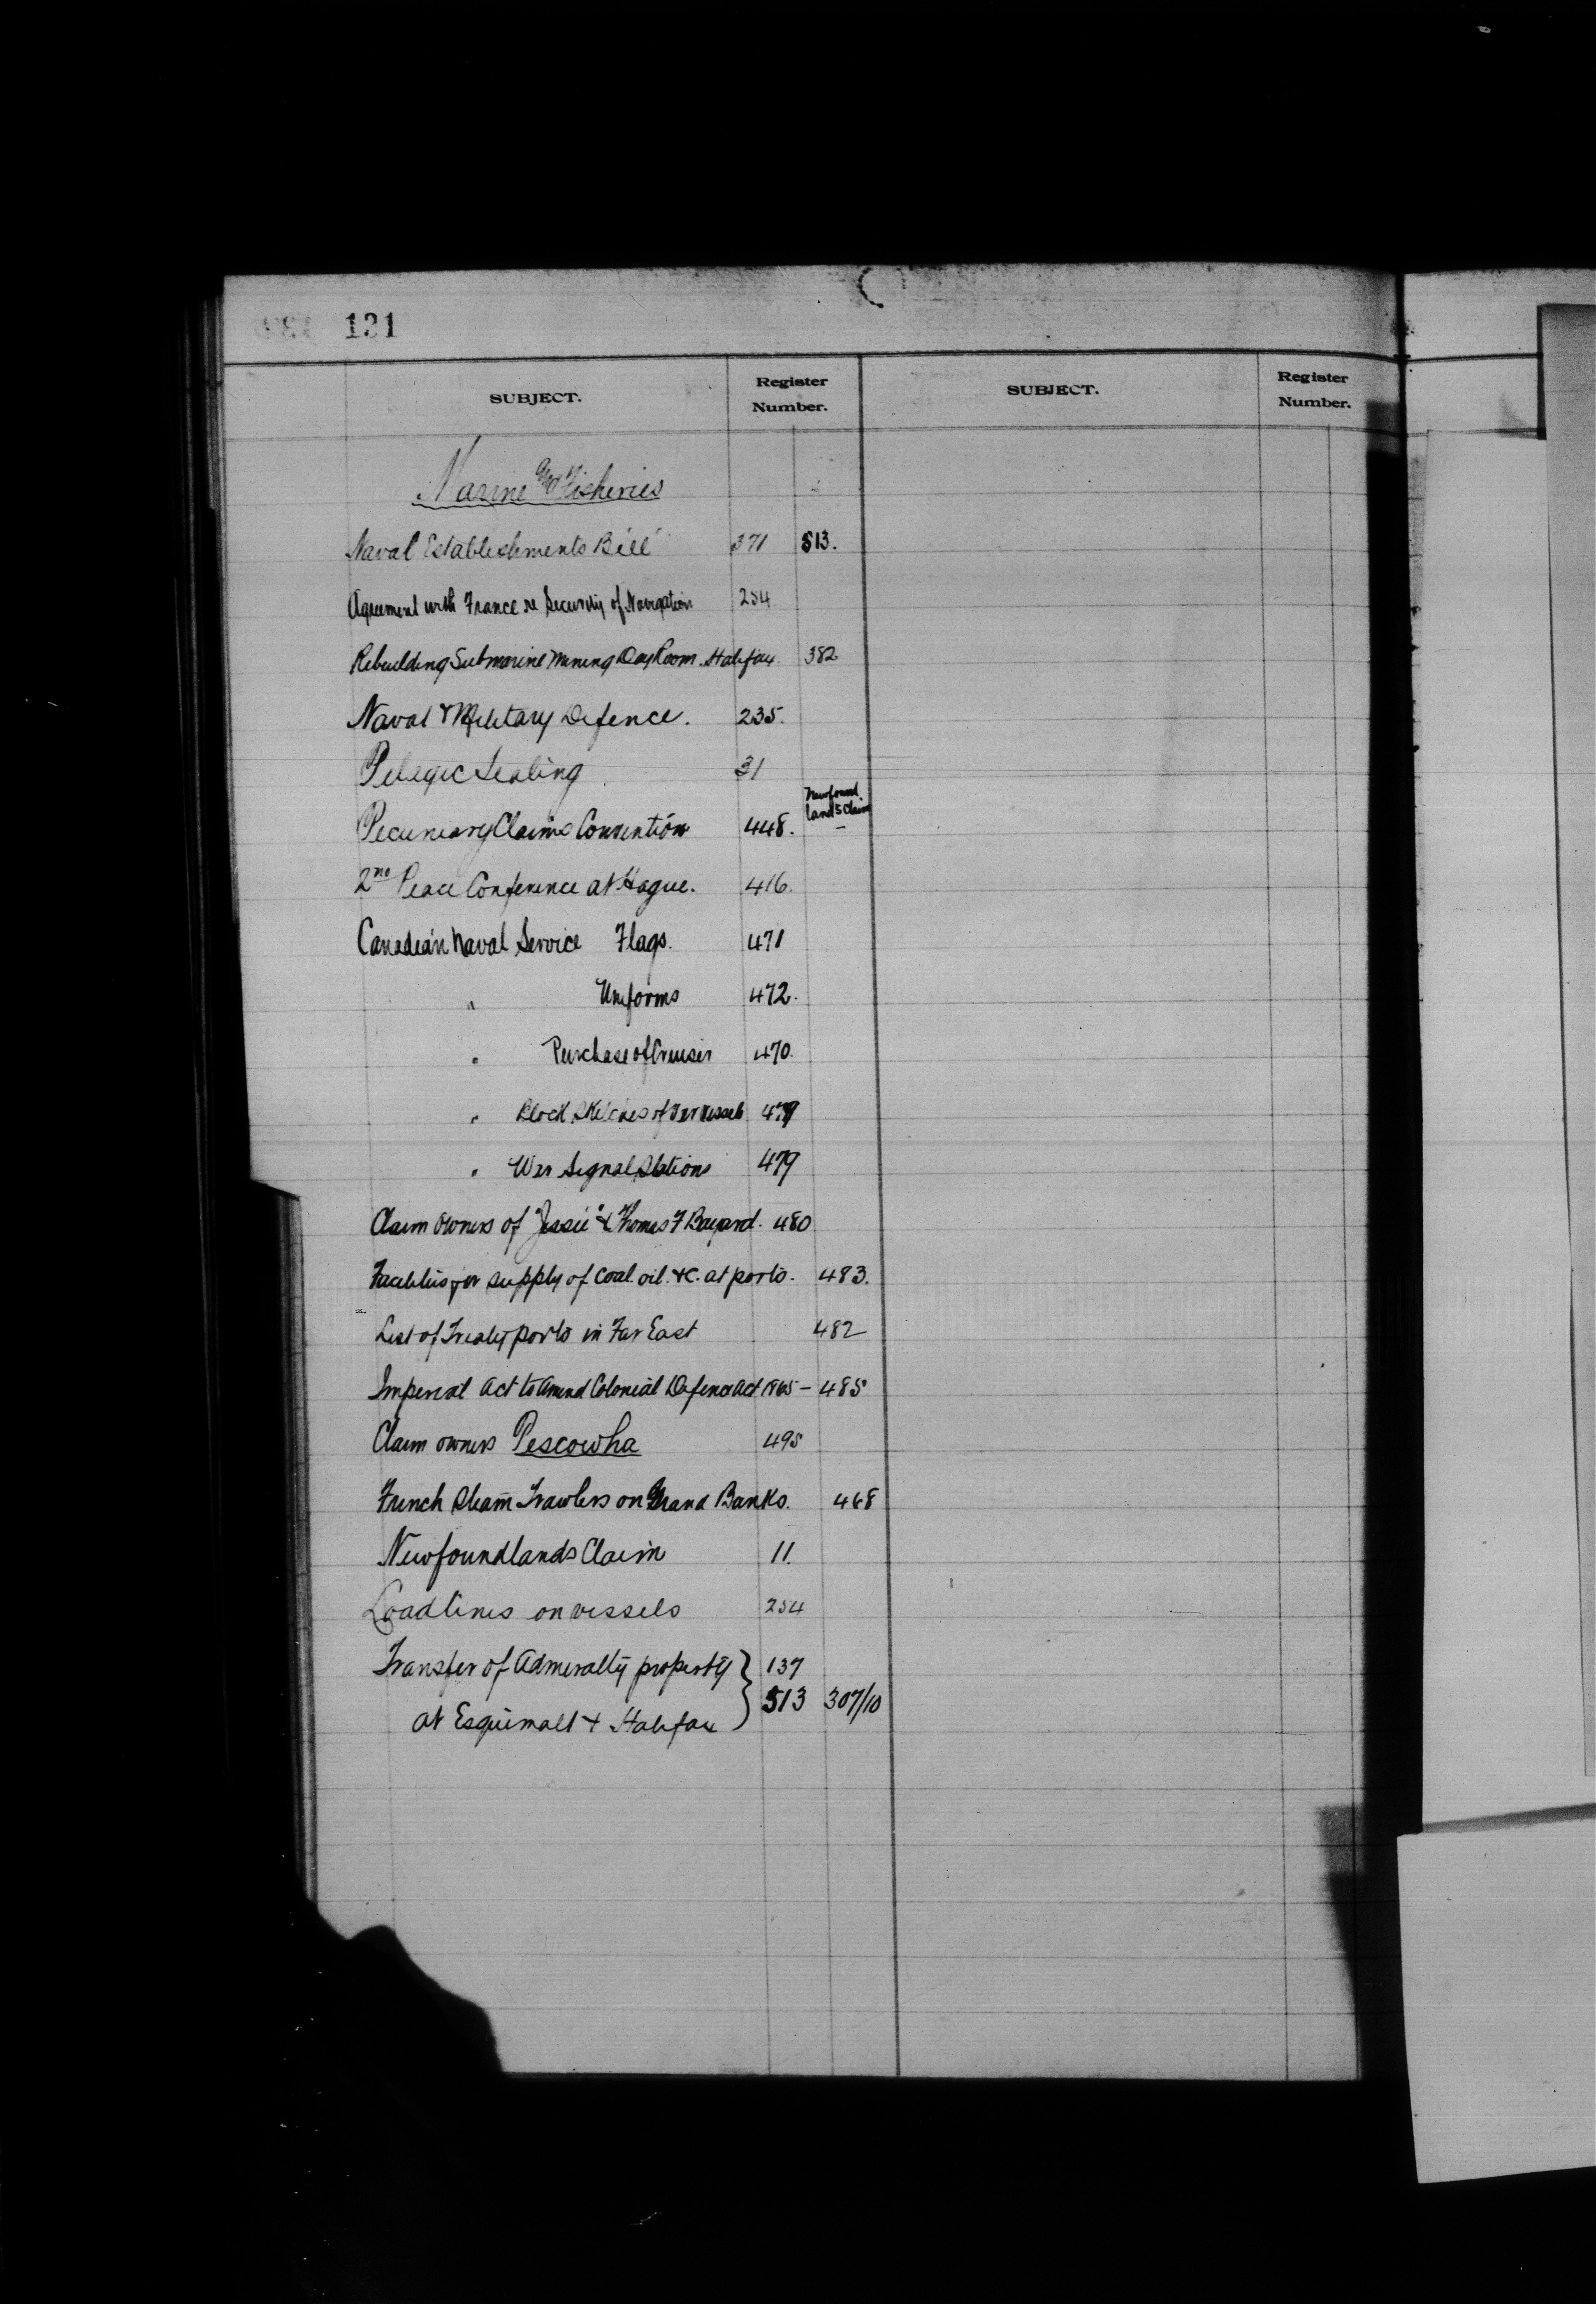 131
SUBJECT. Register Number. SUBJECT. Register Number.
Marine and Fisheries
Naval Establishments Bill 371 513.
Agreement with France re Security of Navigation 254
Rebuilding Submarine Mining Day Room Halifax. 382
Naval & Military Defence. 235.
Pelagic Sealing 31
Pecuniary Claims Convention 448. Newfoundlands Claim
2nd Peace Conference at Hague. 416.
Canadian Naval Service Flags. 471
" Uniforms 472.
" Purchase of Cruiser 470.
" Block Sketches of War Vessels 479
" War Signal Stations 479
Claim owners of "Jessie" & "Thomas F Bayard. 480
Facilities for supply of Coal. oil. &c. at ports. 483.
List of Treaty ports in Far East 482
Imperial Act to Amend Colonial Defence Act 1865 - 485
Claim owners Pescowha 495
French Steam Trawlers on Grand Banks. 468
Newfoundlands Claim 11.
Loadlines on vessels 254
Transfer of Admiralty property } 137
at Esquimalt & Halifax } 513 307/10